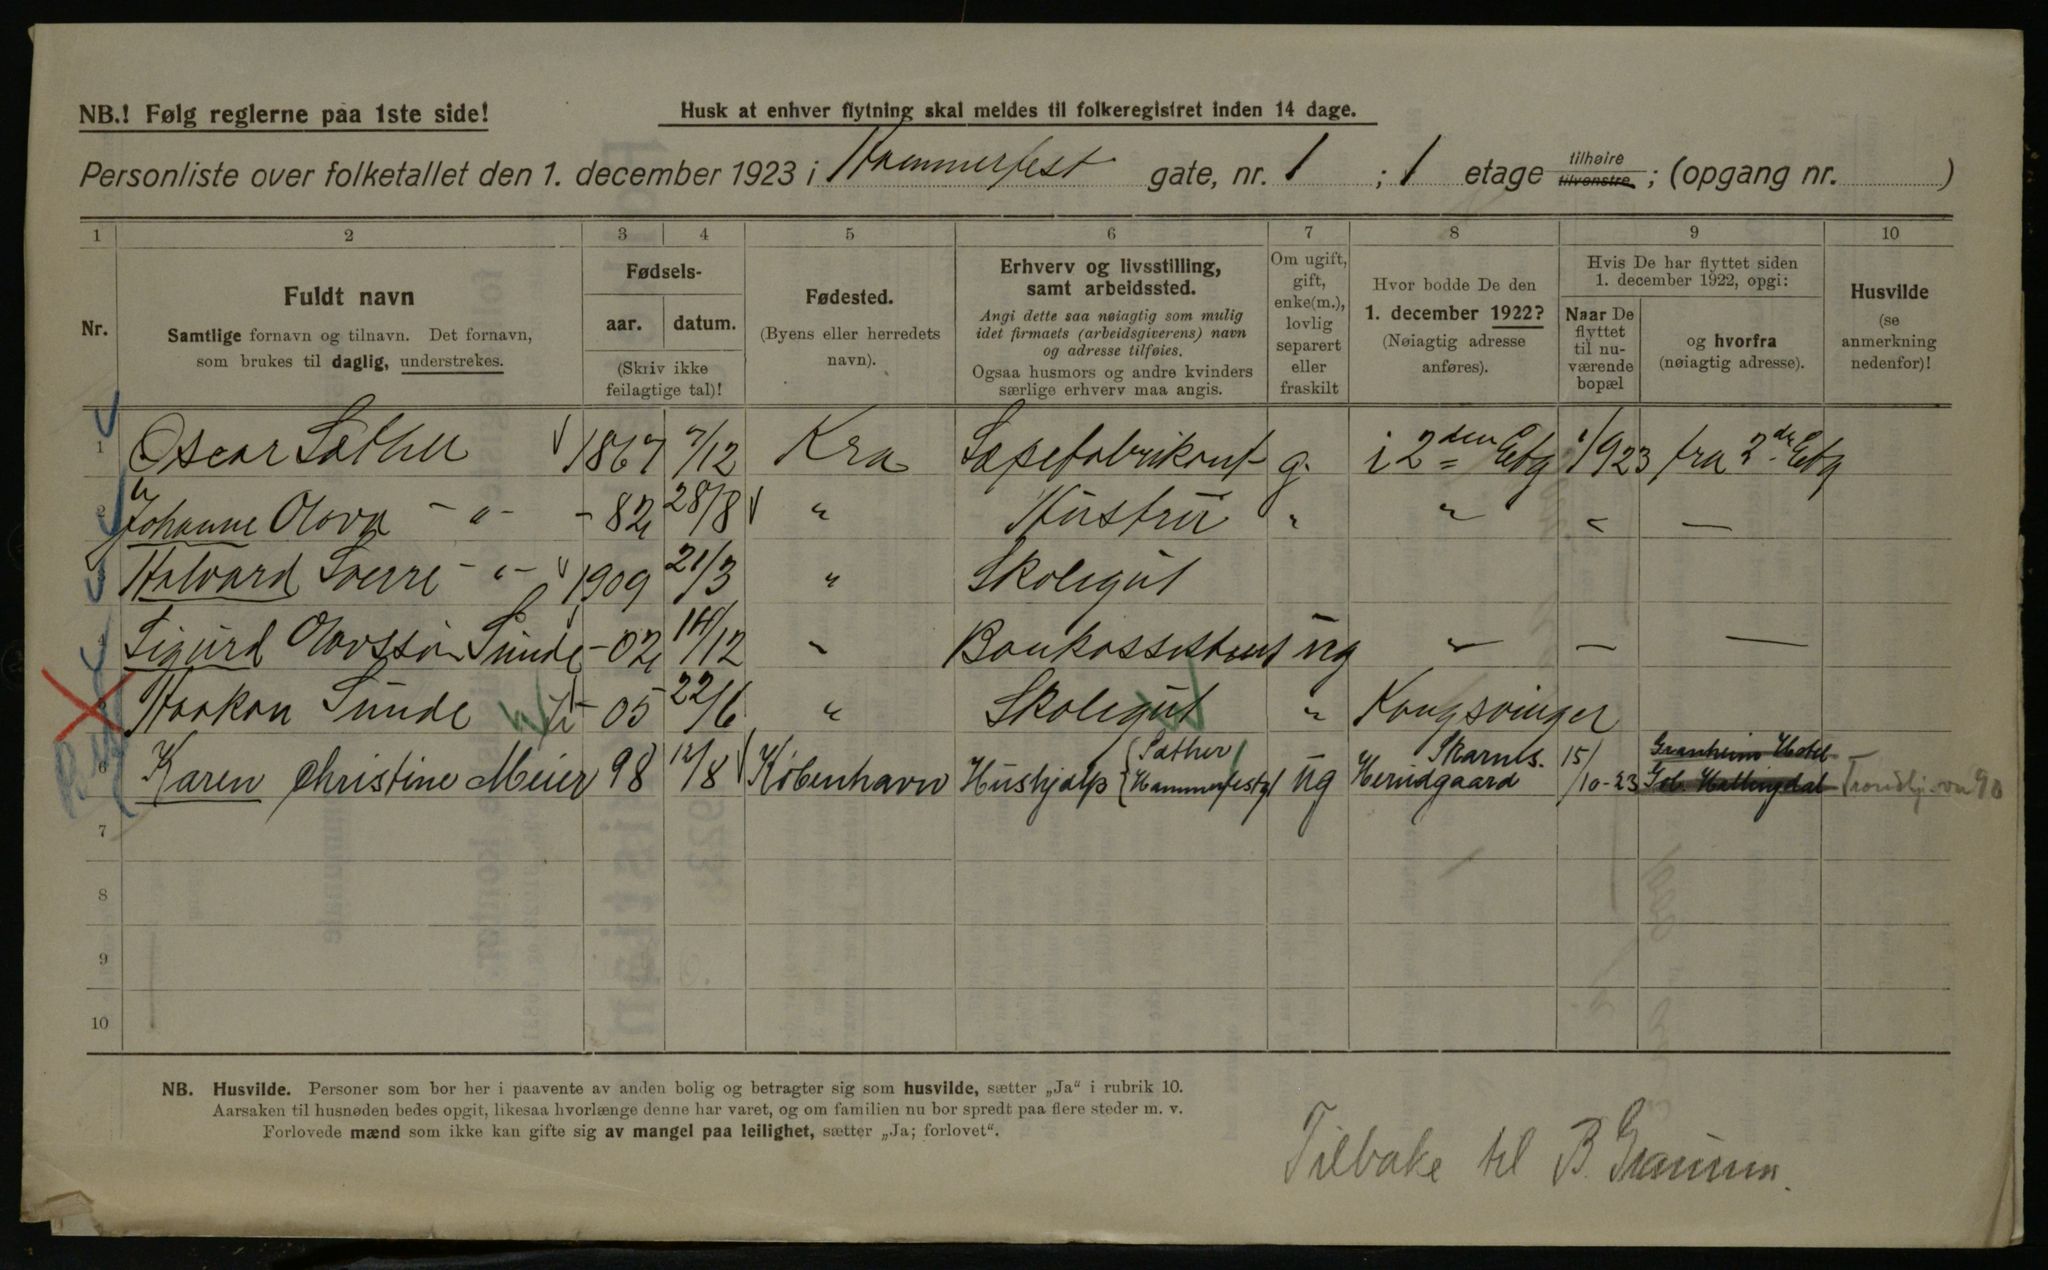 NB.! Følg reglerne paa 1ste side!
Husk at enhver flytning skal meldes til folkeregistret inden 14 dage.
Personliste over folketallet den 1. december 1923 i Hammerfest gate, nr. 1 ; 1 etage tilhøire tilvenstre ; (opgang nr. )
1 2 3 4 5 6 7 8 9 10
Nr.
Fuldt navn
Samtlige fornavn og tilnavn. Det fornavn,
som brukes til daglig, understrekes.
Fødsels-
aar. datum.
(Skriv ikke
feilagtige tal)!
Fødested.
(Byens eller herredets
navn).
Erhverv og livsstilling,
samt arbeidssted.
Angi dette saa nøiagtig som mulig
idet firmaets (arbeidsgiverens) navn
og adresse tilføies.
Ogsaa husmors og andre kvinders
særlige erhverv maa angis.
Om ugift,
gift,
enke(m.),
lovlig
separert
eller
fraskilt
Hvor bodde De den
1. december 1922?
(Nøiagtig adresse
anføres).
Hvis De har flyttet siden
1. december 1922, opgi:
Naar De
flyttet
til nu-
værende
bopæl
og hvorfra
(nøiagtig adresse).
Husvilde
(se
anmerkning
nedenfor)!
1 Oscar Sæther 1867 7/12 Kra Sæpefabrikant g. i 2den Etg 1/923 fra 2de Etg
2 Johanne Olava - " - - 82 28/8 " Hustru " " " —
3 Halvard Sverre - " - 1909 21/3 " Skolegut
4 Sigurd Olavssøn Sunde - 02 14/12 " Bankassistent ug " — —
5 Haakon Sunde - 05 22/6 " Skolegut " Kongsvinger
6 Karen Christine Meier 98 12/8 København Hushjælp { Sæther Hammerfestg ug Skarnes. Herudgaard 15/10-23 Granheim Hotel Gol. Hallingdal Trondhj.vn 90
7
8
9
10
NB. Husvilde. Personer som bor her i paavente av anden bolig og betragter sig som husvilde, sætter „Ja“ i rubrik 10.
Aarsaken til husnøden bedes opgit, likesaa hvorlænge denne har varet, og om familien nu bor spredt paa flere steder m. v.
Forlovede mænd som ikke kan gifte sig av mangel paa leilighet, sætter „Ja; forlovet“.
Tilbake til B.